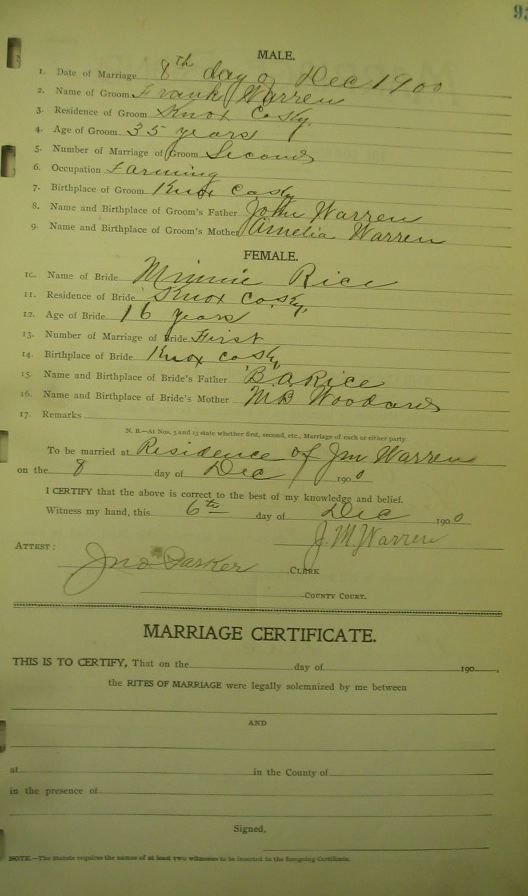 MALE.
1. Date of Marriage 8th day of Dec 1900
2. Name of Groom Frank Warren
3. Residence of Groom Knox Co Ky,
4. Age of Groom 35 years
5. Number of Marriage of Groom Second
6. Occupation Farming
7. Birthplace of Groom Knox Co Ky
8. Name and Birthplace of Groom's Father John Warren
9. Name and Birthplace of Groom's Mother Amelia Warren
FEMALE.
10. Name of Bride Minnie Rice
11. Residence of Bride Knox Co. Ky,
12. Age of Bride 16 years
13. Number of Marriage of Bride First
14. Birthplace of Bride Knox Co Ky
15. Name and Birthplace of Bride's Father B. A. Rice
16. Name and Birthplace of Bride's Mother M B Woodard
17. Remarks
N. B.—At Nos. 5 and 13 state whether first, second, etc., Marriage of each or either party.
To be married at Residence of Jm Warren
on the 8 day of Dec 1900
I CERTIFY that the above is correct to the best of my knowledge and belief.
Witness my hand, this 6th day of Dec 1900
J. M Warren
ATTEST:
Jno Parker CLERK
COUNTY COURT.
MARRIAGE CERTIFICATE.
THIS IS TO CERTIFY, That on the day of 190 ,
the RITES OF MARRIAGE were legally solemnized by me between
AND
at in the County of
in the presence of
Signed,
NOTE.—The Statute requires the names of at least two witnesses to be inserted in the foregoing Certificate.